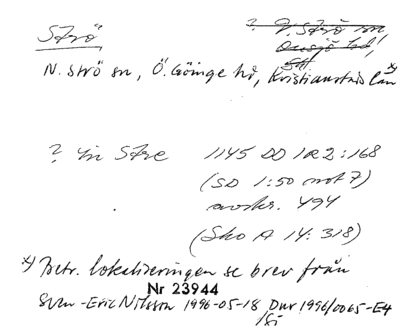 Strö ? V. Strö sn
Onsjö hd,
N. Strö sn, Ö. Göinge hd, Kristianstads län *)
? in Stre 1145 DD 1R2:168
(SD 1:50 not 7)
avskr. 494
(Sko A 14: 318)
*) Betr. lokaliseringen se brev från
Nr 23944
Sven-Eric Nilsson 1996-05-18 / Dnr 1996/0065-E4